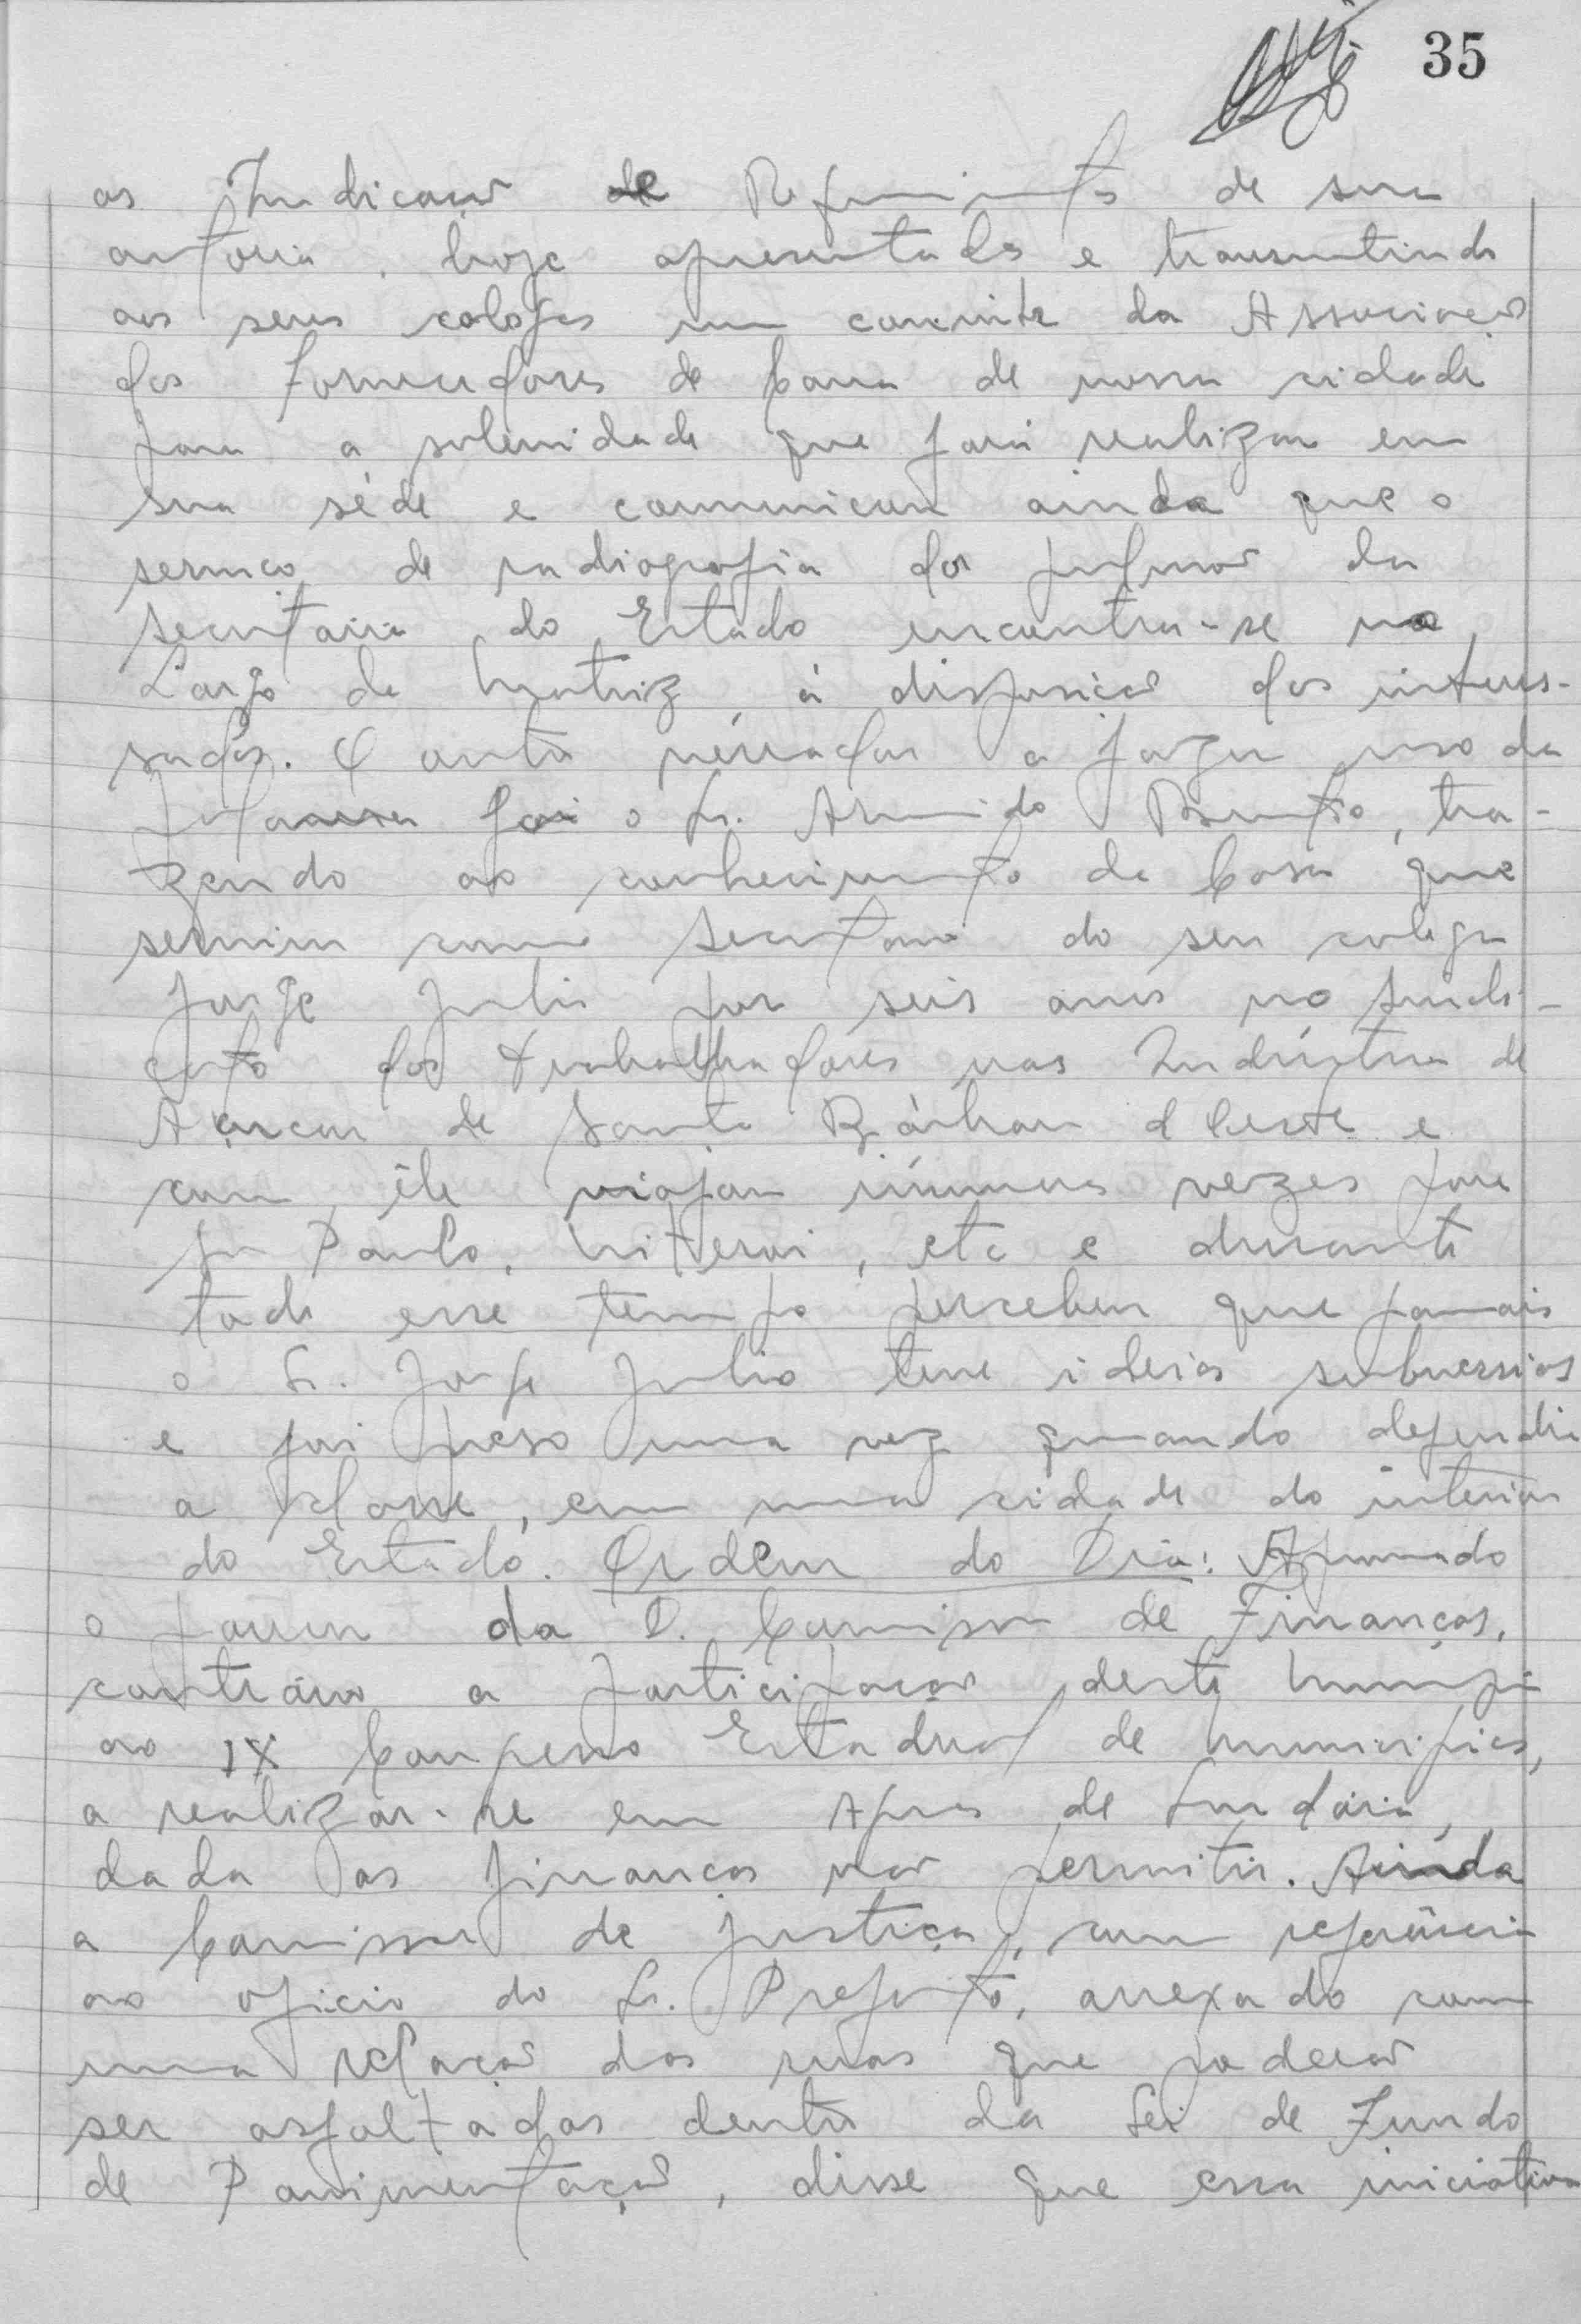 35
as Indicação de Requerimentos de sua
autoria, hoje apresentados e transmitindo
aos seus colegas um convite da Associação
dos Fornecedores de Cana de nossa cidade
para a solenidade que fará realizar em
sua séde e comunicou ainda que o
serviço de radiografia dos pulmões da
Secretaria do Estado encontra-se no
Largo da Matriz, á disposição dos interes-
sados. O outro vereador a fazer uso da
palavra foi o Sr. Armindo, tra-
zendo ao conhecimento da Casa que
serviu como Secretario do seu colega
Jorge Julio por seis anos no Sindi-
cato dos Trabalhadores nas Indústria de
Açucar de Santa Bárbara d'Oeste e
com êle viajou inúmeras vezes para
S. Paulo, Niteroi, etc e durante
todo esse tempo percebeu que jamais
o Sr. Jorge Julio teve ideias subversivas
e foi preso uma vez quando defendia
a classe, em uma cidade do interior
do Estado. Ordem do Dia: Aprovado
o parecer da D. Comissão de Finanças,
contrário a participação deste Municipio
ao IX Congresso Estadual de Municipios,
a realizar-se em Aguas de Lindóia,
dada as finanças não permitir. Ainda
a Comissão de Justiça, com referência
ao oficio do Sr. Prefeito, anexado com
uma relação das ruas que poderão
ser asfaltadas dentro da Lei de Fundo
de Pavimentação, disse que essa iniciativa